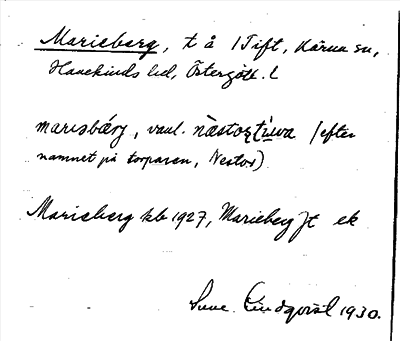 Marieberg, t å 1 Tift, Kärna sn,
Hanekinds hd, Östergötl. l
marɩsbærj, vanl. nästorstuva (efter
namnet på torparen, Nestor)
Marieberg kb 1927, Marieberg jt ek
Sune Lindqvist 1930.